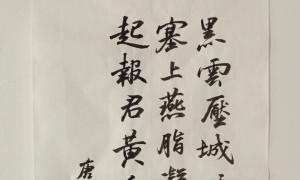 黑雲壓城
塞上燕脂凝
起報君黃
唐